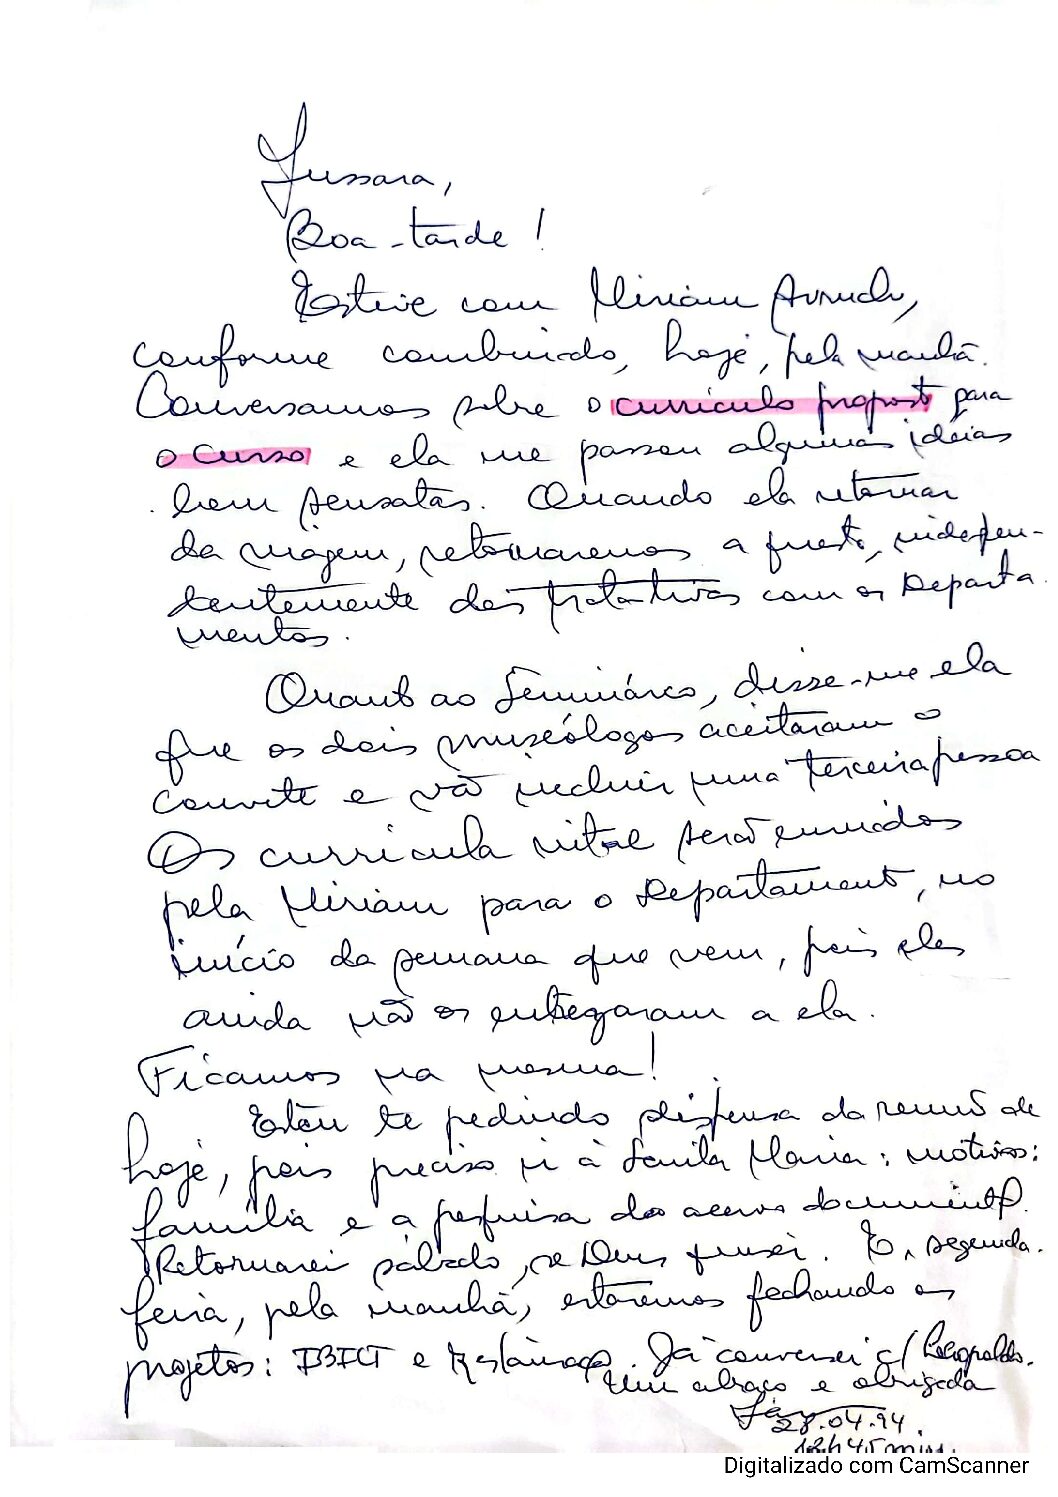 Jussara,
Boa-tarde!
Estive com Miriam Arruda,
conforme combinado, hoje, pela manhã.
Conversamos sobre o currículo proposto para
o curso e ela me passou algumas idéias
bem sensatas. Quando ela retornar
da viagem, retomaremos a questão, indepen-
dentemente das tratativas com os Departa-
mentos.
Quanto ao Seminário, disse-me ela
que os dois museólogos aceitaram o
convite e vão incluir uma terceira pessoa
Os curricula vitae serão enviados
pela Miriam para o Departamento, no
início da semana que vem, pois eles
ainda não os entregaram a ela.
Ficamos na mesma!
Estou te pedindo dispensa da reunião de
hoje, pois preciso ir à Santa Maria: motivos:
família e a pesquisa do acervo documental.
Retornarei sábado, se Deus quiser. E, segunda-
feira, pela manhã, estaremos fechando os
projetos: IBICT e Restauração. Já conversei c/ Leopoldo.
Um abraço e obrigada
28.04.94.
12h45min.
Digitalizado com CamScanner